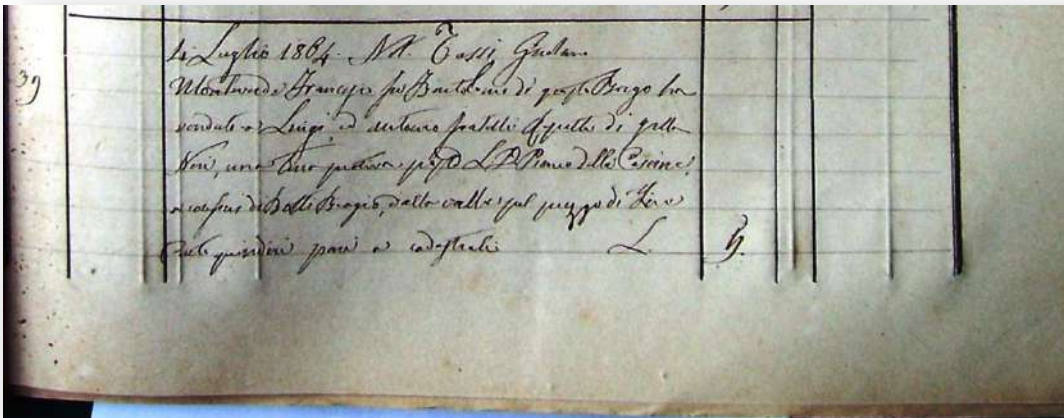 39
4 Luglio 1864. Nt. Tassi Gaetano
Monteverde Francesco fu Bartolomeo di questo Borgo ha
venduto a Luigi ed Antonio fratelli di
una terra prativa L. D. Piano delle Cascine,
a confini di Balli Biagio, dalla valle pel prezzo di Lire
cento quindici pari a cadastrali L.